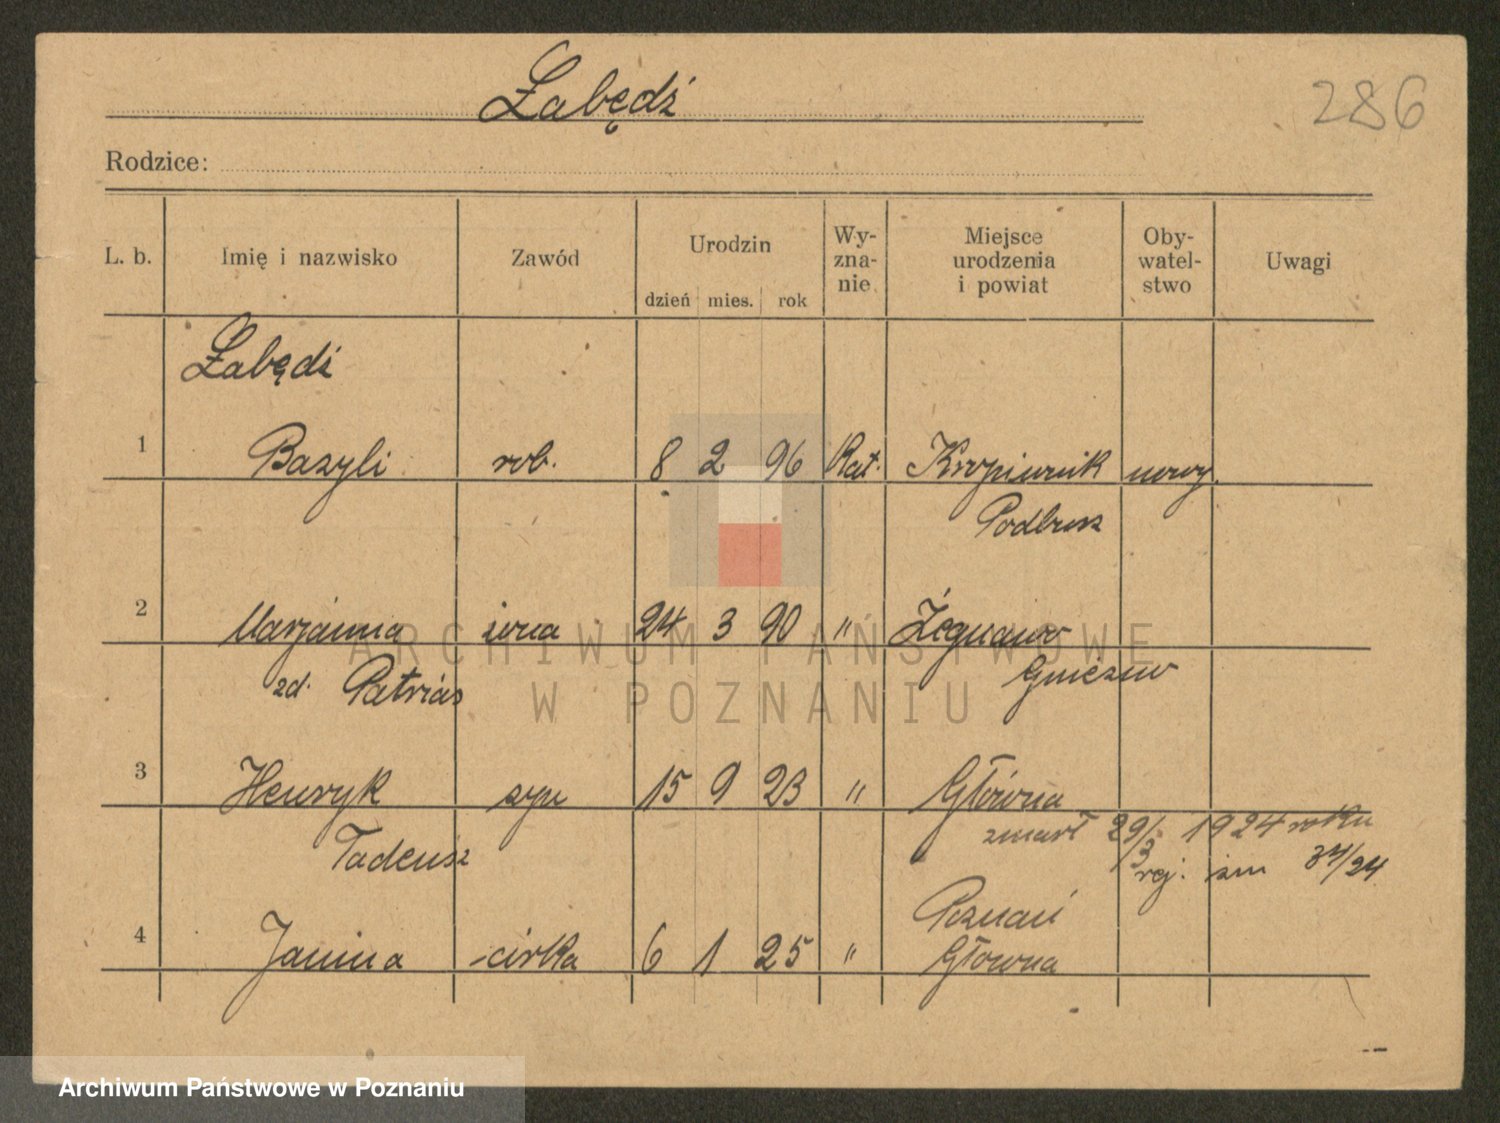 Łabędź
286
Rodzice:
L. b. Imię i nazwisko Zawód Urodzin dzień mies. rok Wy-zna-nie Miejsce urodzenia i powiat Oby-watel-stwo Uwagi
Łabędź
1 Bazyli rob. 8 2 96 Kat. Kropiwnik nowy.
Podbusz
2 Marjanna żona 24 3 90 " Żegnowo
zd. Patrias Gniezno
3 Henryk syn 15 9 23 " Główna
Tadeusz zmarł 29/3 1924 roku
rej. zm 34/24
Poznań
4 Janina córka 6 1 25 " Główna
ARCHIWUM PAŃSTWOWE
W POZNANIU
Archiwum Państwowe w Poznaniu